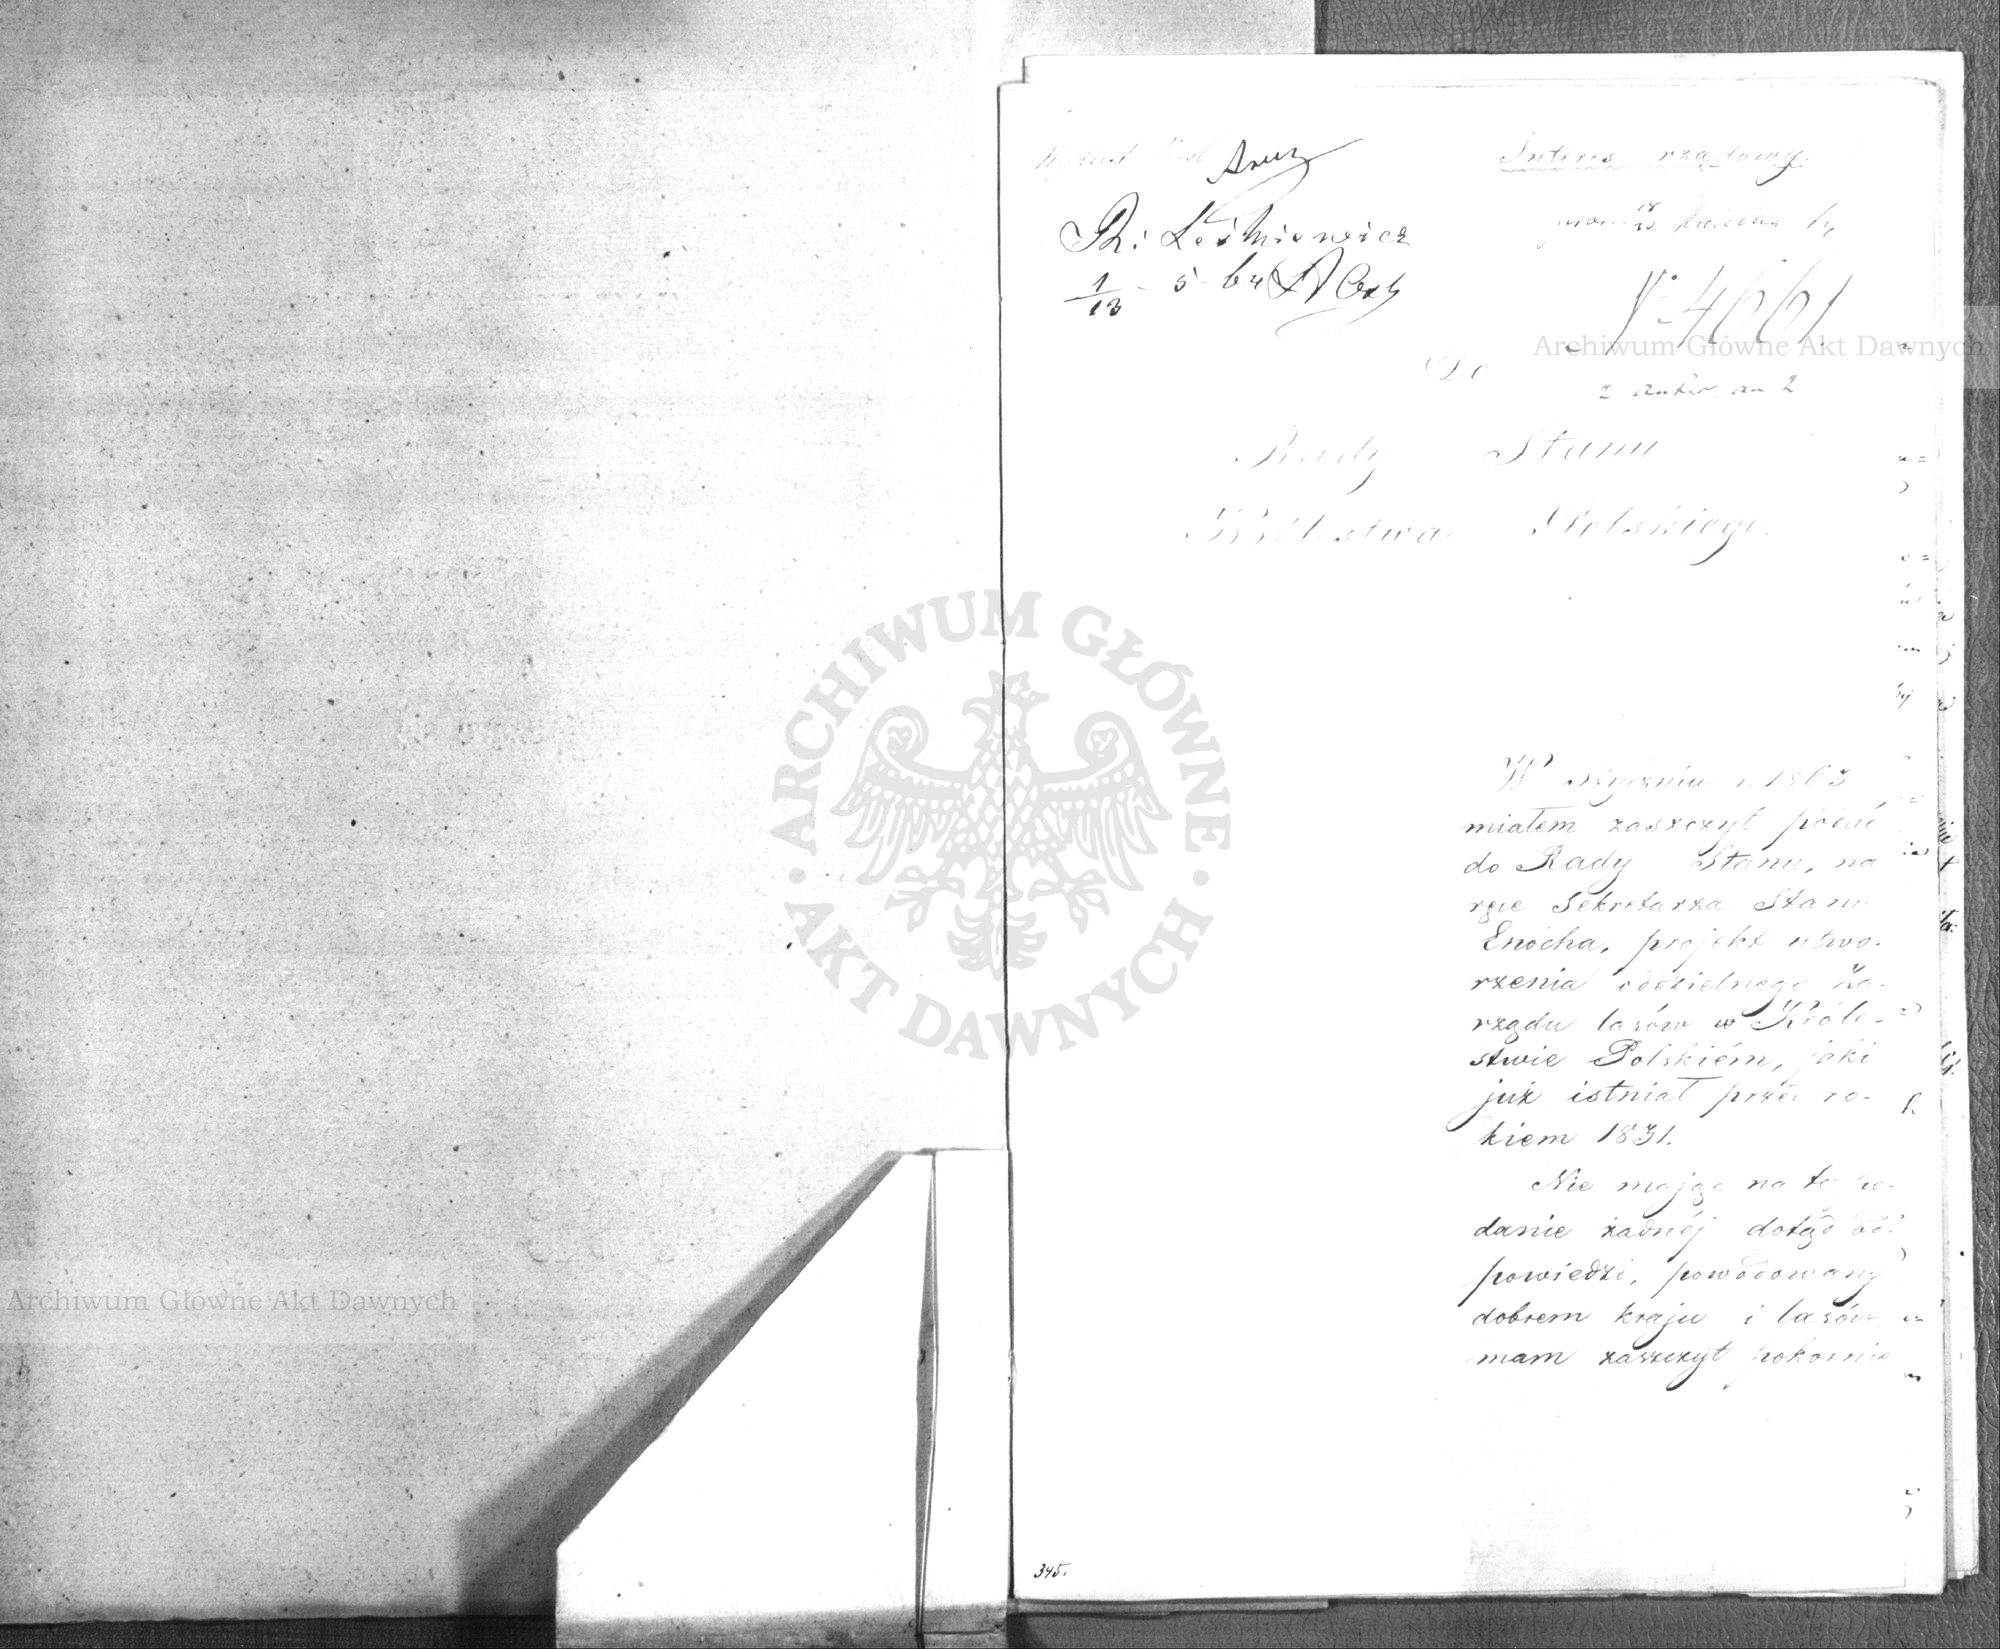 Interes rządowy.
18 Kwietnia
Leśniewicz
1/13 - 5 - 64
N: 4661
Archiwum Główne Akt Dawnych
Do
Rady Stanu
Królestwa Polskiego.
ARCHIWUM GŁÓWNE · AKT DAWNYCH ·
W Styczniu r. 1863
miałem zaszczyt podać
do Rady Stanu, na
ręce Sekretarza Stanu
Enocha, projekt utwo-
rzenia oddzielnego Za-
rządu lasów w Króle-
stwie Polskiém, jaki
już istniał przed ro-
kiem 1831.
Nie mając na to po-
danie żadnéj dotąd od-
powiedzi, powodowany
dobrem kraju i lasów
mam zaszczyt pokornie
Archiwum Główne Akt Dawnych
345.